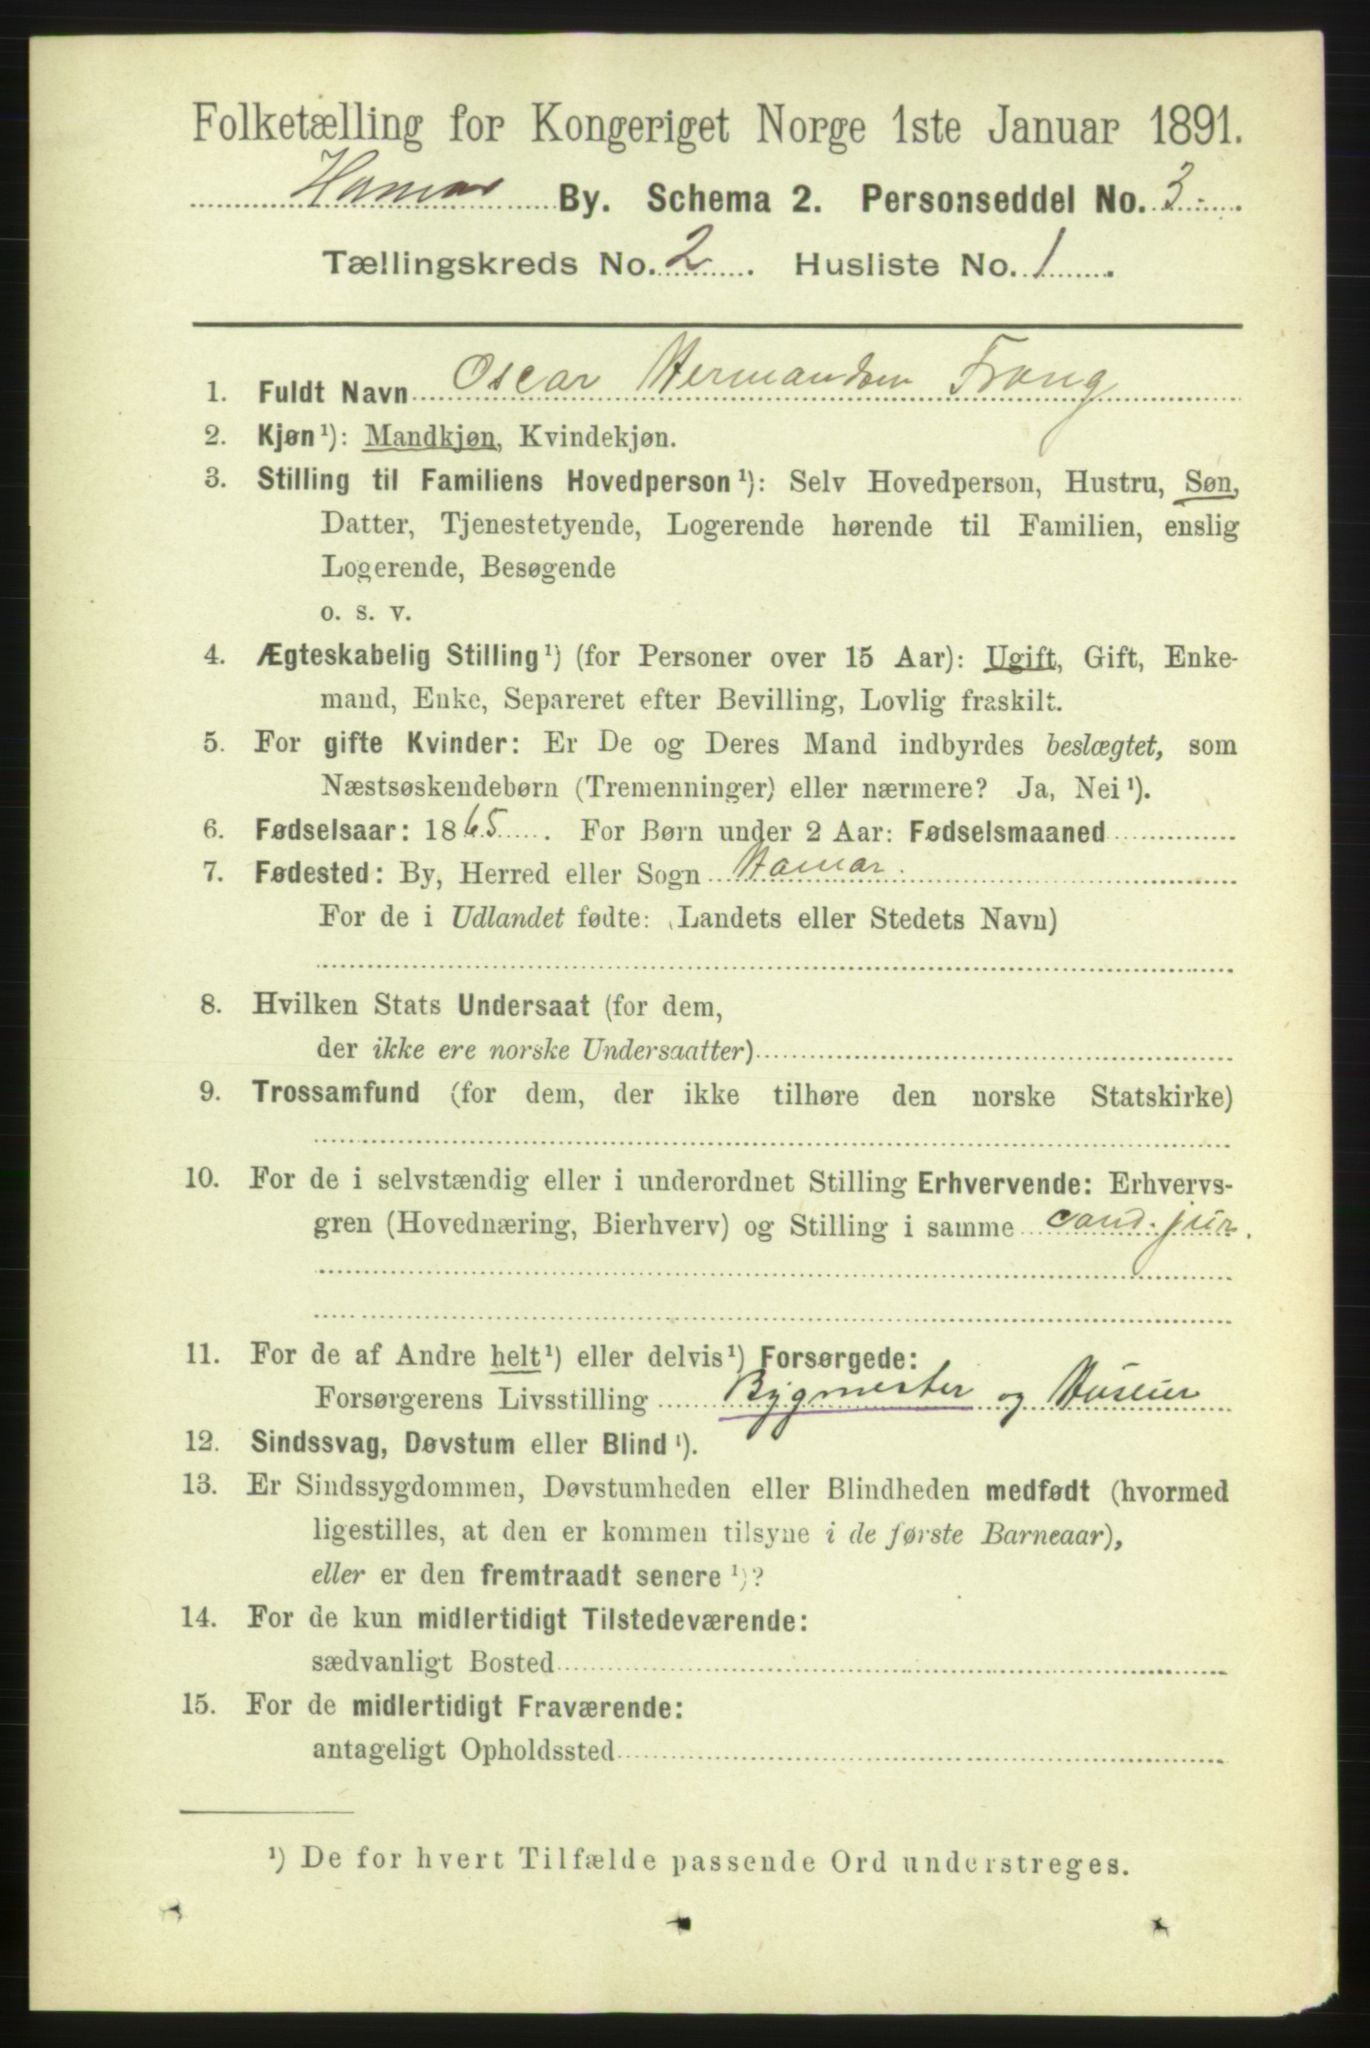 Folketælling for Kongeriget Norge 1ste Januar 1891.
Hamar By. Schema 2. Personseddel No. 3
Tællingskreds No. 2. Husliste No. 1.
1. Fuldt Navn Oscar Hermandsen Frang
2. Kjøn¹): Mandkjøn, Kvindekjøn.
3. Stilling til Familiens Hovedperson¹): Selv Hovedperson, Hustru, Søn,
Datter, Tjenestetyende, Logerende hørende til Familien, enslig
Logerende, Besøgende
o. s. v.
4. Ægteskabelig Stilling¹) (for Personer over 15 Aar): Ugift, Gift, Enke-
mand, Enke, Separeret efter Bevilling, Lovlig fraskilt.
5. For gifte Kvinder: Er De og Deres Mand indbyrdes beslægtet, som
Næstsøskendebørn (Tremenninger) eller nærmere? Ja, Nei¹).
6. Fødselsaar: 1865. For Børn under 2 Aar: Fødselsmaaned
7. Fødested: By, Herred eller Sogn Hamar.
For de i Udlandet fødte: (Landets eller Stedets Navn)
8. Hvilken Stats Undersaat (for dem,
der ikke ere norske Undersaatter)
9. Trossamfund (for dem, der ikke tilhøre den norske Statskirke)
10. For de i selvstændig eller i underordnet Stilling Erhvervende: Erhvervs-
gren (Hovednæring, Bierhverv) og Stilling i samme cand. jur.
11. For de af Andre helt¹) eller delvis¹) Forsørgede:
Forsørgerens Livsstilling Bygmester og Huseier
12. Sindssvag, Døvstum eller Blind¹).
13. Er Sindssygdommen, Døvstumheden eller Blindheden medfødt (hvormed
ligestilles, at den er kommen tilsyne i de første Barneaar),
eller er den fremtraadt senere¹)?
14. For de kun midlertidigt Tilstedeværende:
sædvanligt Bosted
15. For de midlertidigt Fraværende:
antageligt Opholdssted
¹) De for hvert Tilfælde passende Ord understreges.